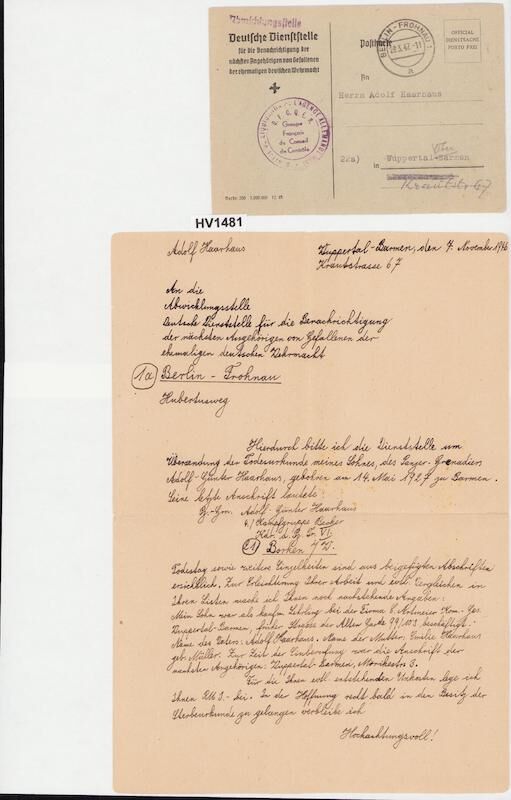 Abwicklungsstelle
Deutsche Dienststelle
für die Benachrichtigung der
nächsten Angehörigen von Gefallenen
der ehemaligen deutschen Wehrmacht
Groupe
Français
de Conseil
de Contrôle
Postkarte
BERLIN-FROHNAU 1
28.3.47.-11
a
OFFICIAL
DIENSTSACHE
PORTO FREI
An
Herrn Adolf Haarhaus
22a) in Wuppertal-Barmen
Krautstr 67
HV1481
Adolf Haarhaus
Wuppertal-Barmen, den 7. November 1946
Krautstrasse 67
An die
Abwicklungsstelle
Deutsche Dienststelle für die Benachrichtigung
der nächsten Angehörigen von Gefallenen der
ehemaligen deutschen Wehrmacht
1a Berlin - Frohnau
Hubertusweg
Hierdurch bitte ich die Dienststelle um
Übersendung der Todesurkunde meines Sohnes, des Panzer-Grenadiers
Adolf-Günter Haarhaus, geboren am 14. Mai 1927 zu Barmen.
Seine letzte Anschrift lautete
Pz.-Grn. Adolf-Günter Haarhaus
4./Kampfgruppe Becker
VI.
21 Borken i/W.
Todestag sowie weitere Einzelheiten sind aus beigefügten Abschriften
ersichtlich. Zur Erleichterung Ihrer Arbeit und evtl. Vergleichen in
Ihren Listen mache ich Ihnen noch nachstehende Angaben:
Mein Sohn war als kaufm. Lehrling bei der Firma Kom.-Ges.
Wuppertal-Barmen, früher Strasse der Alten Garde 99/103 beschäftigt.
Name des Vaters: Adolf Haarhaus. Name der Mutter: Emilie Haarhaus
geb. Müller. Zur Zeit der Einberufung war die Anschrift der
nächsten Angehörigen: Wuppertal-Barmen, Mörikestr 3.
Für die Ihnen evtl. entstehenden Unkosten lege ich
Ihnen RM 3.- bei. In der Hoffnung recht bald in den Besitz der
Sterbeurkunde zu gelangen verbleibe ich
Hochachtungsvoll!